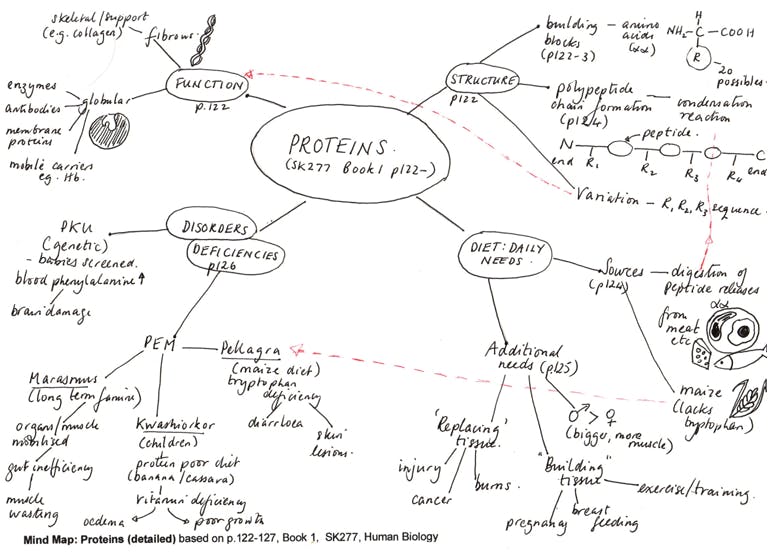 PROTEINS.
(SK277 Book 1 p122-)
FUNCTION
p.122
skeletal/support
(e.g. collagen)
fibrous.
enzymes
antibodies
membrane
proteins
mobile carriers
eg. Hb.
globular
STRUCTURE
p122
building
blocks
(p122-3)
amino
acids
(αα)
H
NH₂ - C - COOH
R
20
possibles.
polypeptide
chain formation
(p124)
condensation
reaction
peptide.
N
end
R₁
R₂
R₃
R₄
C
end
Variation - R₁ R₂ R₃ sequence.
DISORDERS
DEFICIENCIES
p126
PKU
(genetic)
- babies screened.
blood phenylalanine ↑
brain damage
PEM
Pellagra
(maize diet)
tryptophan
deficiency
diarrhoea
skin
lesions.
Marasmus
(long term famine)
organs/muscle
mobilised
gut inefficiency
muscle
wasting
Kwashiorkor
(children)
protein poor diet
(banana/cassava)
vitamin deficiency
oedema
poor growth
DIET: DAILY
NEEDS.
Sources
(p124)
digestion of
peptide releases
αα
from
meat
etc
maize
(lacks
tryptophan)
Additional
needs (p125)
♂ > ♀
(bigger, more
muscle)
'Replacing'
tissue.
injury
cancer
burns.
"Building"
tissue
exercise/training.
breast
feeding
pregnancy
Mind Map: Proteins (detailed) based on p.122-127, Book 1, SK277, Human Biology